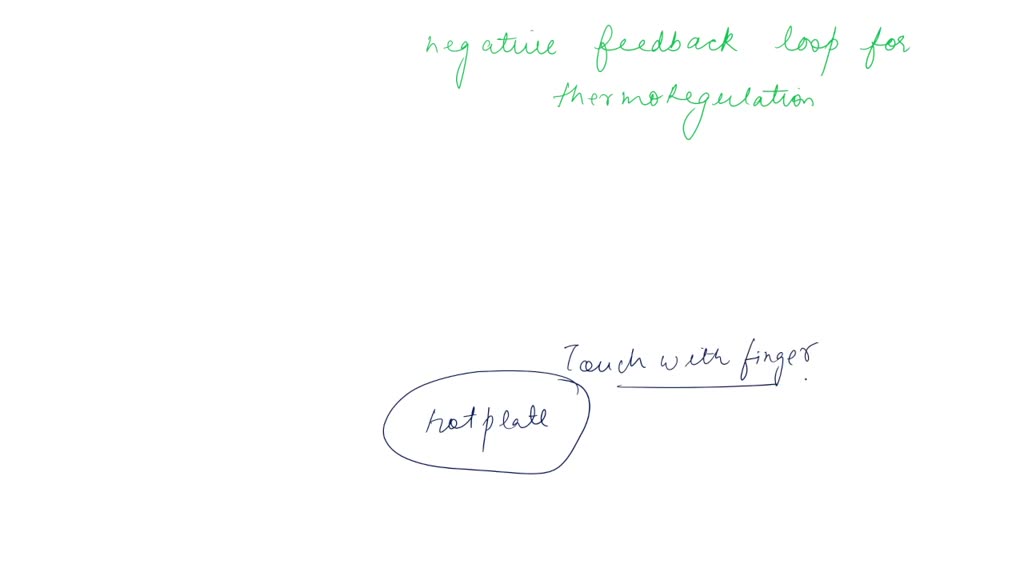 negative feedback loop for
thermoregulation
Touch with finger.
hotplate